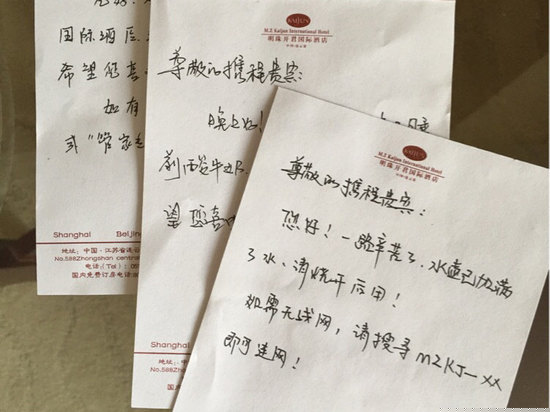 国际酒店
希望您喜
如有
或"管家
Shanghai Beijing
地址：中国·江苏省连云
No.588Zhongshan central
电话(Tel)：05
国内免费订房电话
KAIJUN
M.Z Kaijun International Hotel
明珠开君国际酒店
中国·连云港
尊敬的携程贵宾：
晚上好！
望您喜
Shanghai
地址：中国·
No.588Zhong
电话
国内免费订
KAIJUN
M.Z Kaijun International Hotel
明珠开君国际酒店
中国·连云港
尊敬的携程贵宾：
您好！一路辛苦了，水壶已加满
了水、请烧开后用！
如需无线网，请搜寻MZKJ—XX
即可连网！